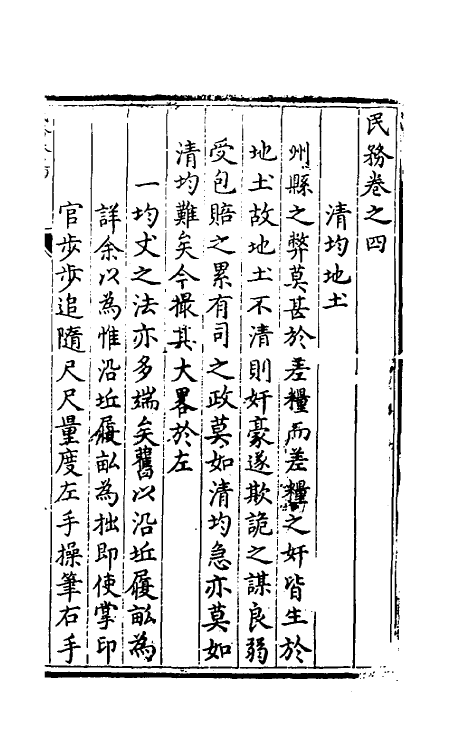 民務卷之四
清均地土
州縣之弊莫甚於差糧而差糧之奸皆生於
地土故地土不清則奸豪遂欺詭之謀良弱
受包賠之累有司之政莫如清均急亦莫如
清均難矣今撮其大畧於左
一均丈之法亦多端矣舊以沿坵履畝為
詳余以為惟沿坵履畝為拙即使掌印
官步步追隨尺尺量度左手操筆右手